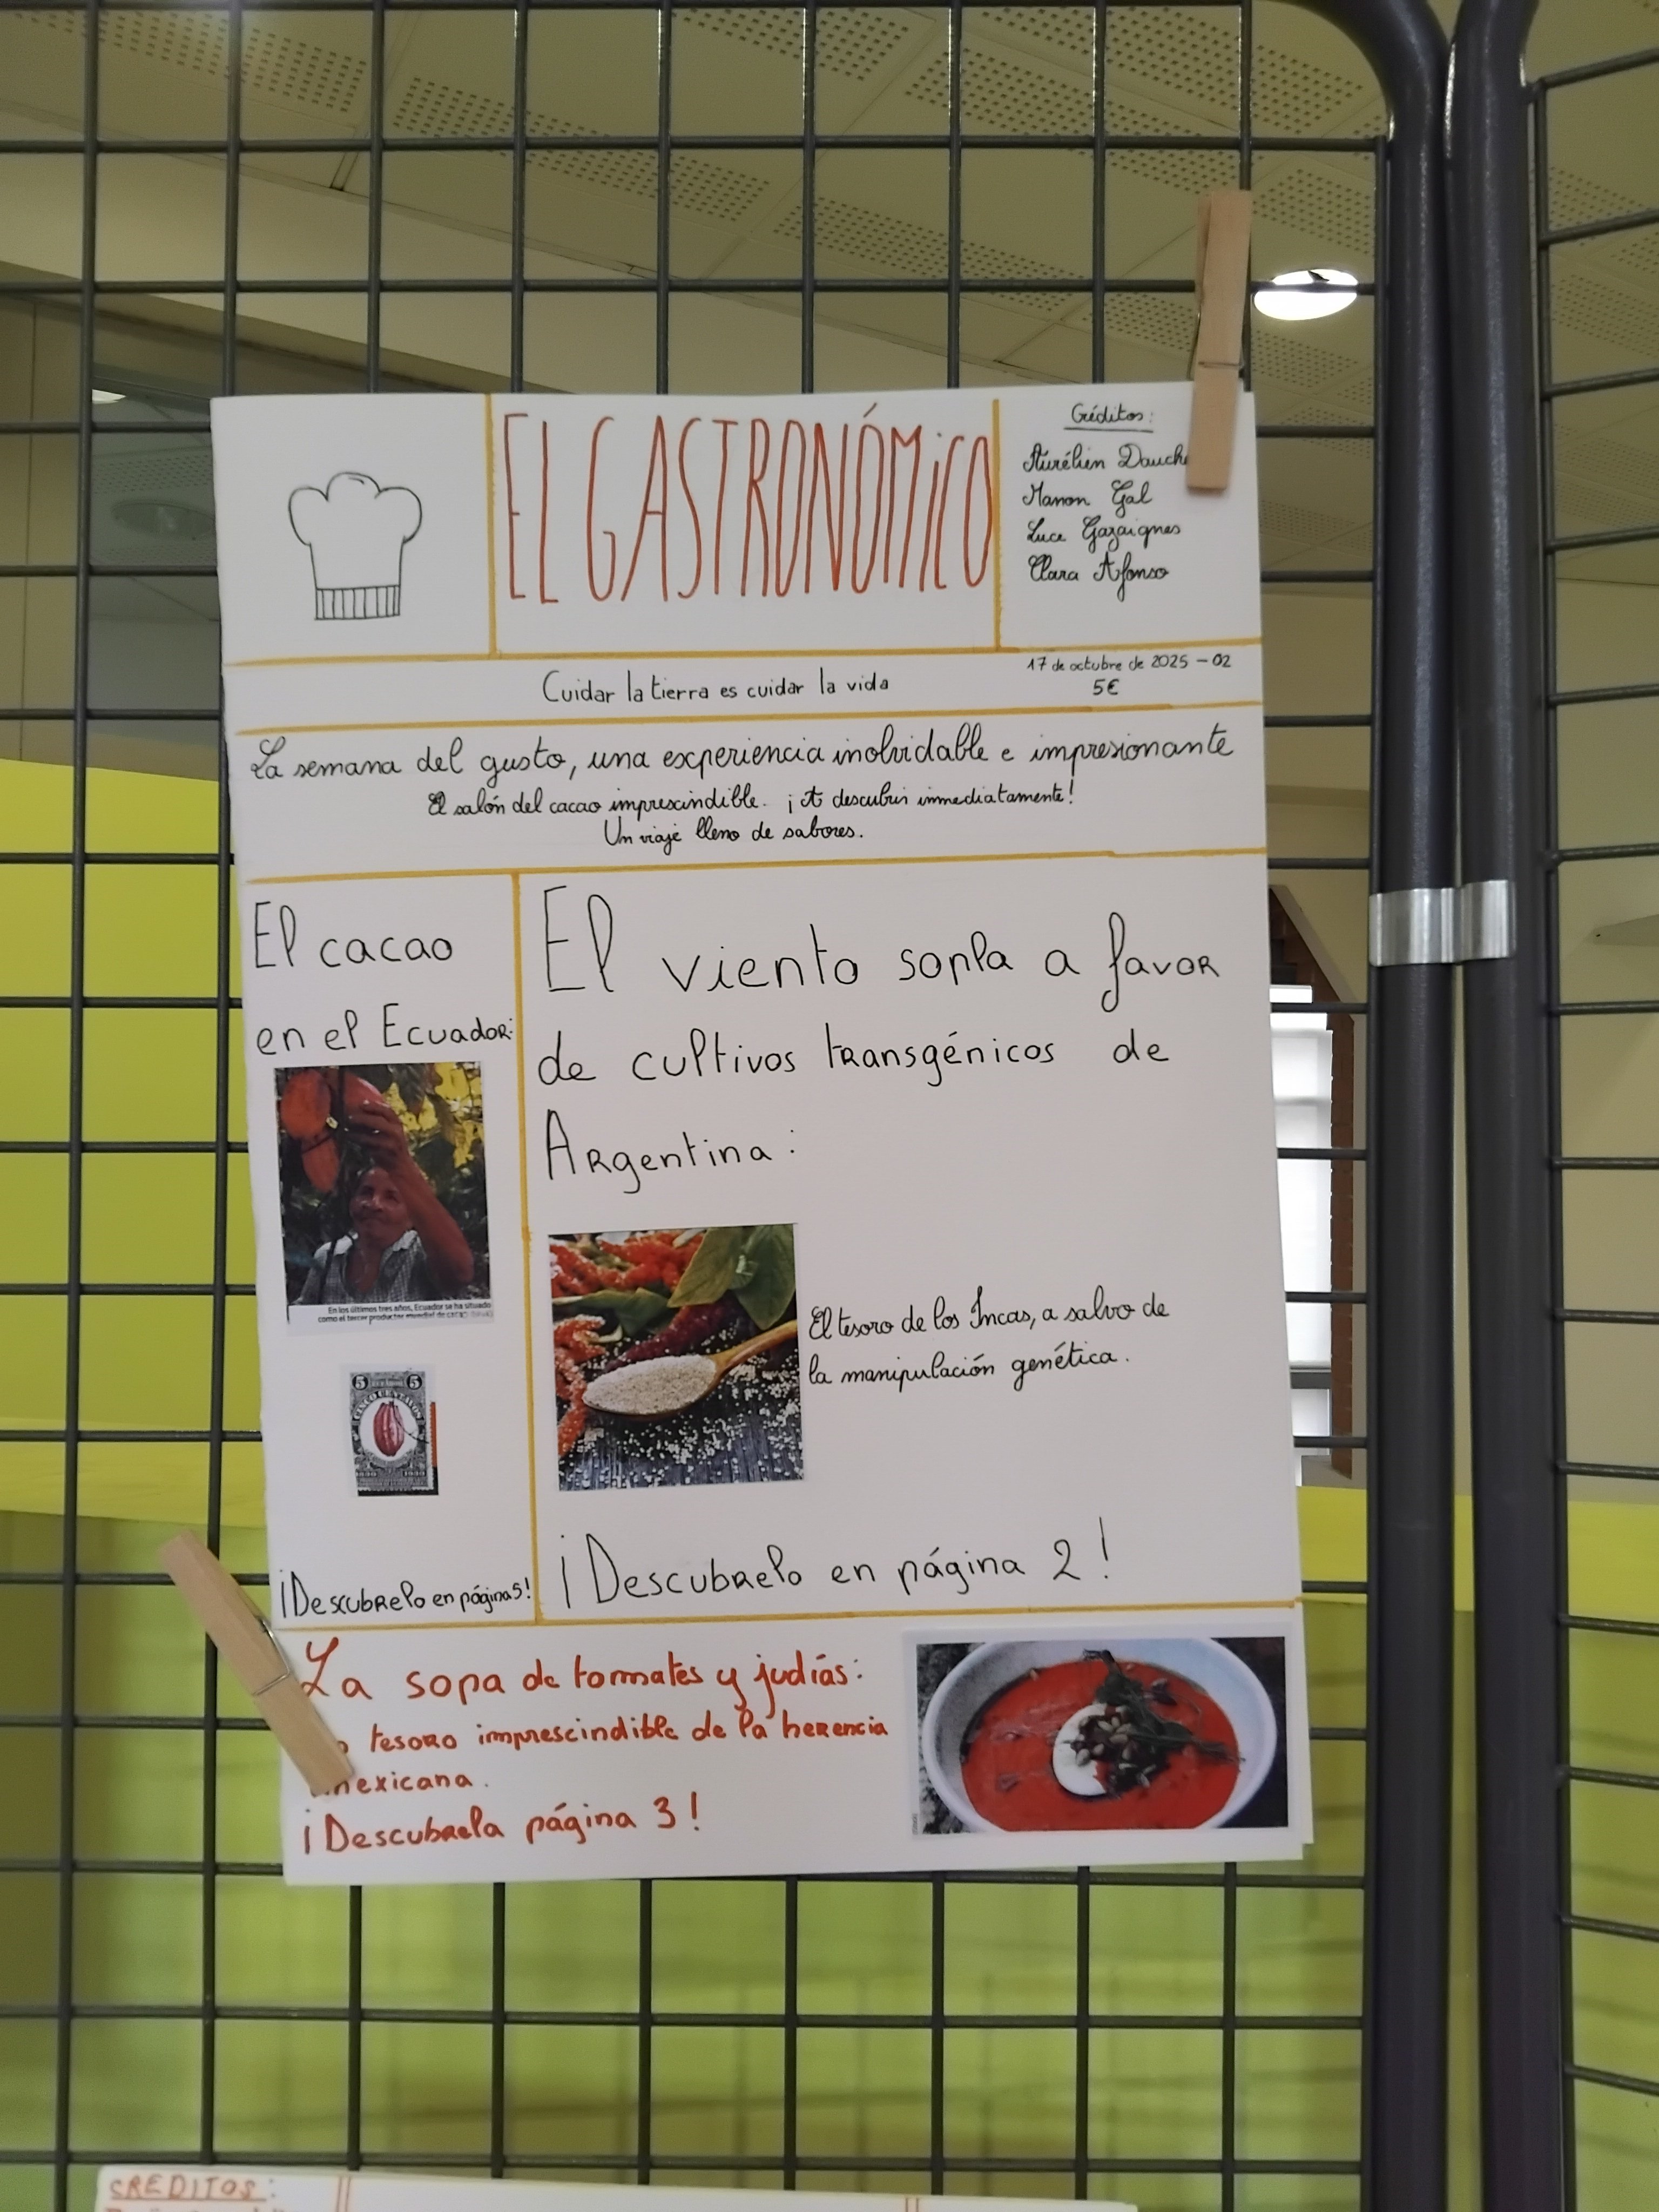 EL GASTRONÓMiCO
Créditos:
Aurélien
Manon Gal
Luce Gazaignes
Clara Afonso
Cuidar la tierra es cuidar la vida
17 de octubre de 2025 - 02
5€
La semana del gusto, una experiencia inolvidable e impresionante
El salón del cacao imprescindible. ¡A descubrir immediatamente!
Un viaje lleno de sabores.
El cacao
en el Ecuador:
En los últimos tres años, Ecuador se ha situado
como el tercer productor mundial de cacao
5 5
CINCO CENTAVOS
¡Descubrelo en página 5!
El viento sopla a favor
de cultivos transgénicos de
Argentina:
El tesoro de los Incas, a salvo de
la manipulación genética.
¡Descubrelo en página 2!
La sopa de tomates y judías:
tesoro imprescindible de la herencia
mexicana.
¡Descubrela página 3!
CREDITOS: